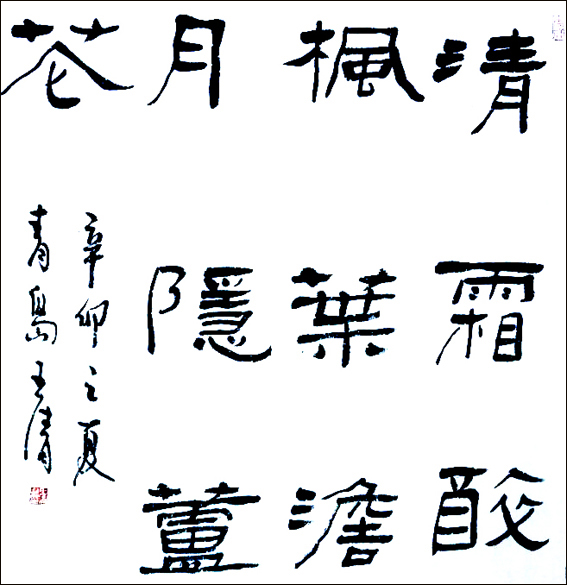 清霜醉
楓葉澹
月隱蘆
花
辛卯之夏
青島王清